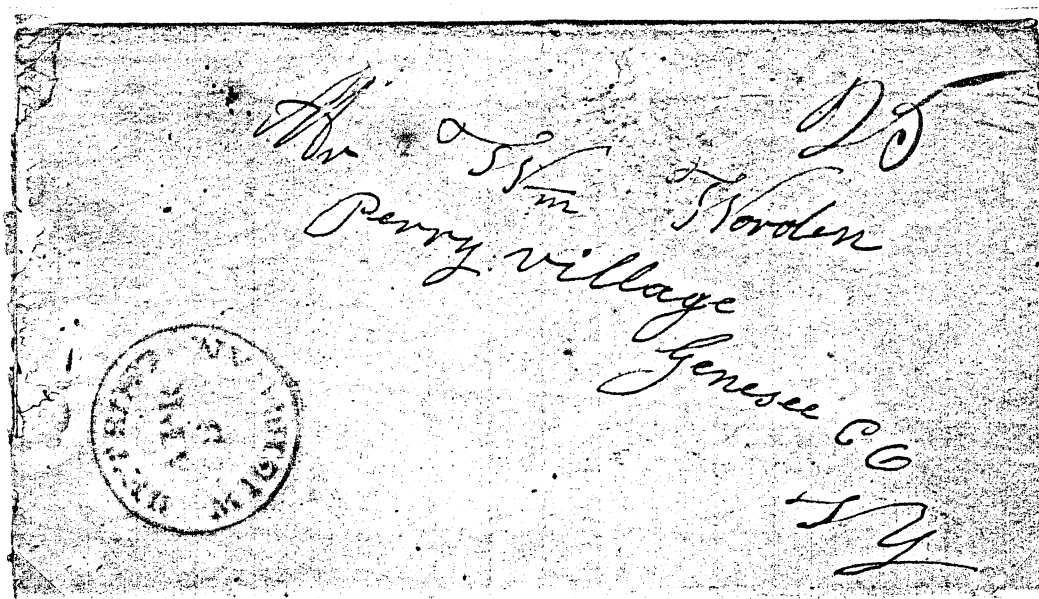 25
Mr Wm Worden
Perry village
Genesee CO
NY
MICHIGAN
APR